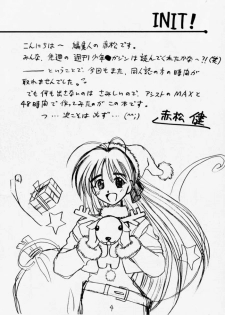 INIT!
こんにちは〜 編集人の赤松です。
みんな、先週の週刊少年●ガジンは読んでくれたかな〜?!(笑)
――ということで、今回もまた、同人誌の本の時間が
取れませんでした。
でも何も出さないのはさみしいので、アシストのMAXと
48時間で作ってみたのがこの本です。
つ…次こそは必ず…(^^;)
赤松 健
4